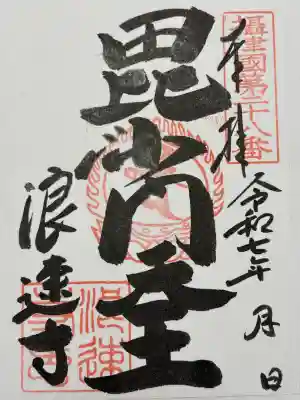 攝津國第二十八番
奉拝
令和七年 月 日
毘沙門
浪速寺
浪速